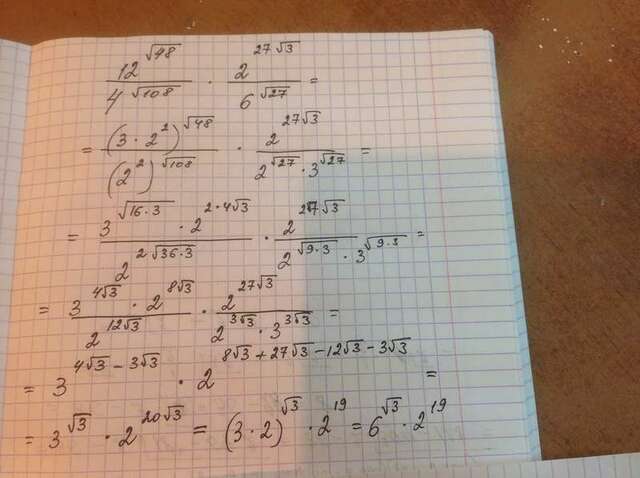 12^√48 / 4^√108 · 2^27√3 / 6^√27 =
= (3·2²)^√48 / (2²)^√108 · 2^27√3 / 2^√27 · 3^√27 =
= 3^√16·3 · 2^2·4√3 / 2^2√36·3 · 2^27√3 / 2^√9·3 · 3^√9·3 =
= 3^4√3 · 2^8√3 / 2^12√3 · 2^27√3 / 2^3√3 · 3^3√3 =
= 3^4√3-3√3 · 2^8√3+27√3-12√3-3√3 =
= 3^√3 · 2^20√3 = (3·2)^√3 · 2^19 = 6^√3 · 2^19